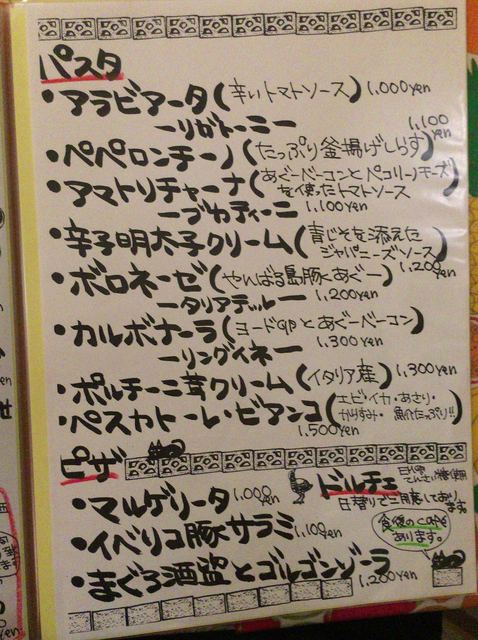 パスタ
・アラビアータ(辛いトマトソース) 1,000yen
ーリガトーニー
・ペペロンチーノ(たっぷり釜揚げしらす) 1,100yen
・アマトリチャーナ(あぐーベーコンとペコリーノチーズ
を使ったトマトソース)
ーブカティーニ 1,100yen
・辛子明太子クリーム(青じそを添えた
ジャパニーズソース) 1,200yen
・ボロネーゼ(やんばる島豚〈あぐー〉)
ータリアテッレー 1,200yen
・カルボナーラ(ヨード卵とあぐーベーコン)
ーリングイネー 1,300yen
・ポルチーニ茸クリーム(イタリア産) 1,300yen
・ペスカトーレ・ビアンコ(エビ・イカ・あさり・
からすみ・魚介たっぷり!!)
1,500yen
ピザ
・マルゲリータ 1,000yen
・イベリコ豚サラミ 1,100yen
・まぐろ酒盗とゴルゴンゾーラ
1,200yen
ドルチェ
日替りでご用意しており
ます
食後のcafe
あります。